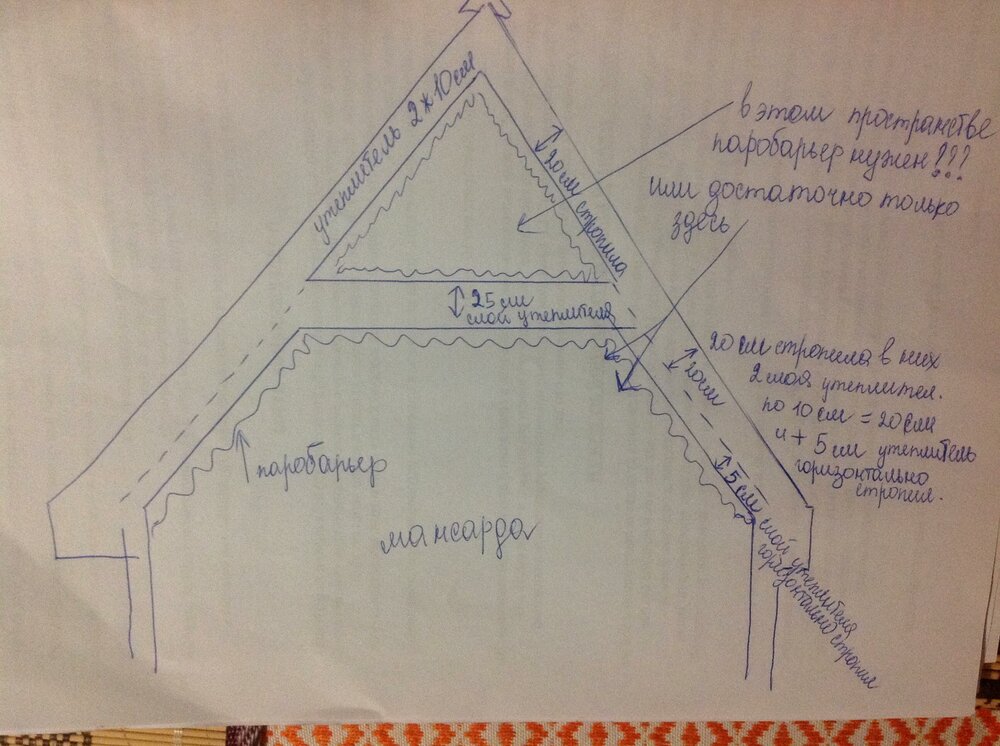 утеплитель 2*10см
в этом пространстве
паробарьер нужен!!!
или достаточно только
здесь
20см стропила
25 см
слой утеплителя
20 см стропила в них
2 слоя утеплител.
по 10 см = 20см
и + 5 см утеплитель
горизонтально
стропил.
паробарьер
мансарда
5 см слой утеплителя
горизонтально стропил